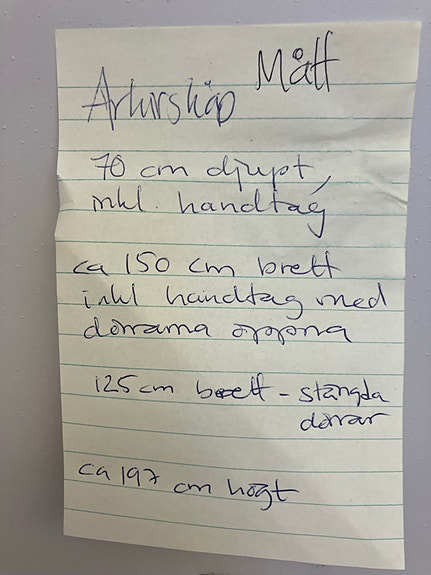 Mått
Arkivskåp
70 cm djupt,
inkl. handtag
ca 150 cm brett
inkl handtag med
dörrarna öppna
125 cm brett - stängda
dörrar
ca 197 cm högt